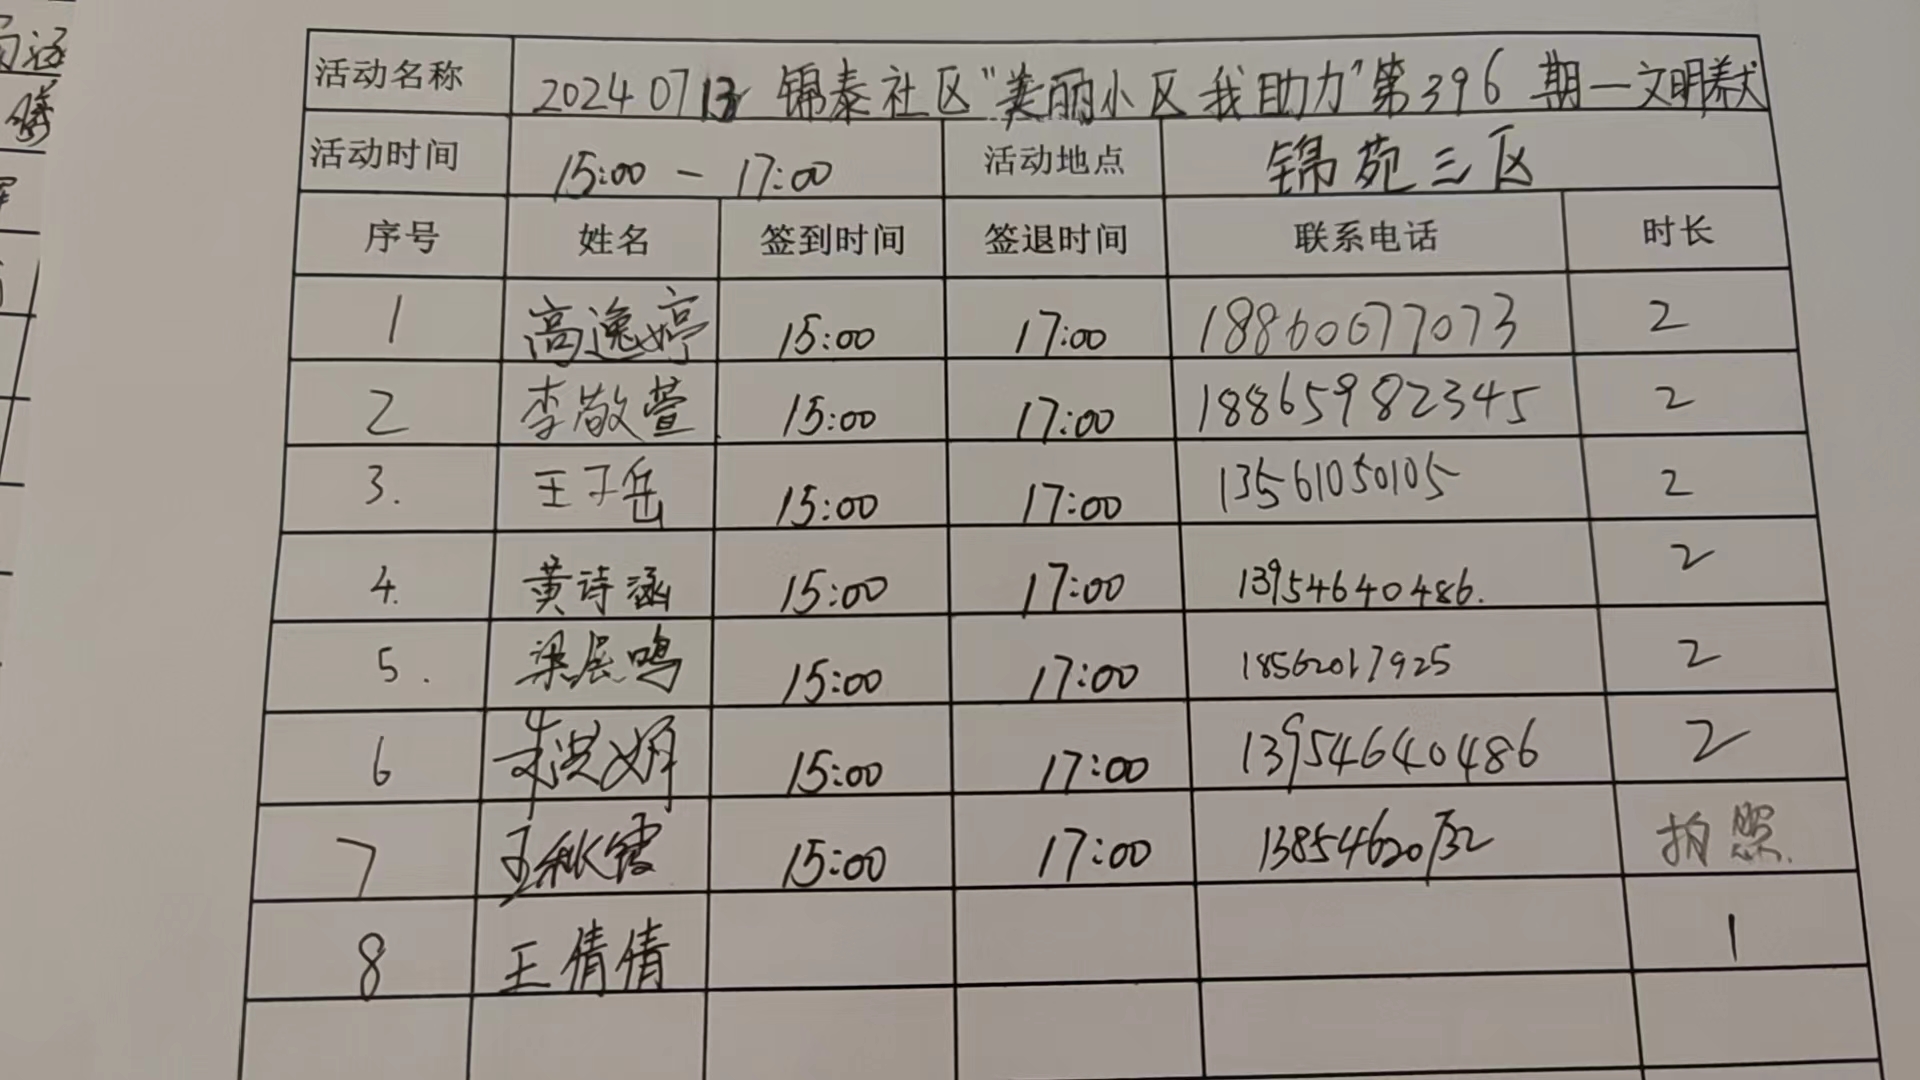 活动名称 20240713 锦泰社区"美丽小区 我助力"第396期—文明养犬
活动时间 15:00 - 17:00 活动地点 锦苑三区
序号 姓名 签到时间 签退时间 联系电话 时长
1 高逸婷 15:00 17:00 18860077073 2
2 李敬萱 15:00 17:00 18865982345 2
3. 王子岳 15:00 17:00 13561050105 2
4. 黄诗涵 15:00 17:00 13954640486. 2
5. 梁宸鸣 15:00 17:00 18562017925 2
6 15:00 17:00 13954640486 2
7 王秋霞 15:00 17:00 13854620732 拍照.
8 王倩倩 1